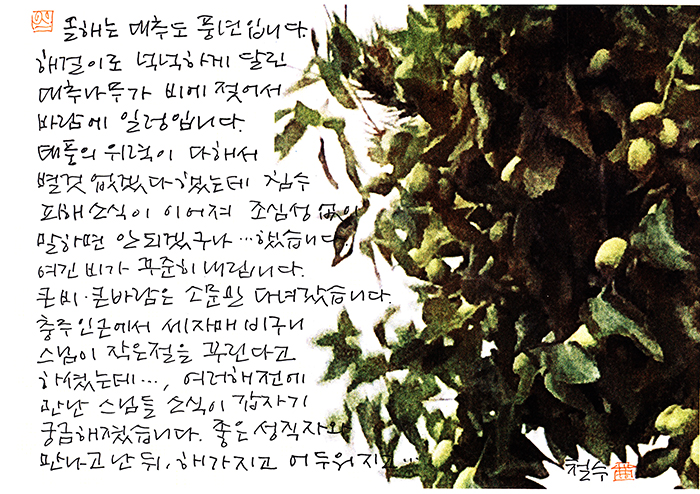 올해는 대추도 풍년입니다.
해걸이로 넉넉하게 달린
대추나무가 비에 젖어서
바람에 일렁입니다.
태풍의 위력이 다해서
별것 없겠다 했는데 침수
피해소식이 이어져 조심성 없이
말하면 안되겠구나…했습니다.
여긴 비가 꾸준히 내립니다.
큰비·큰바람은 소문만 다녀갔습니다.
충주인근에서 세자매 비구니
스님이 작은절을 꾸린다고
하셨는데…, 여러해전에
만난 스님들 소식이 갑자기
궁금해졌습니다. 좋은 성직자와
만나고 난 뒤, 해가지고 어두워지고…
철수